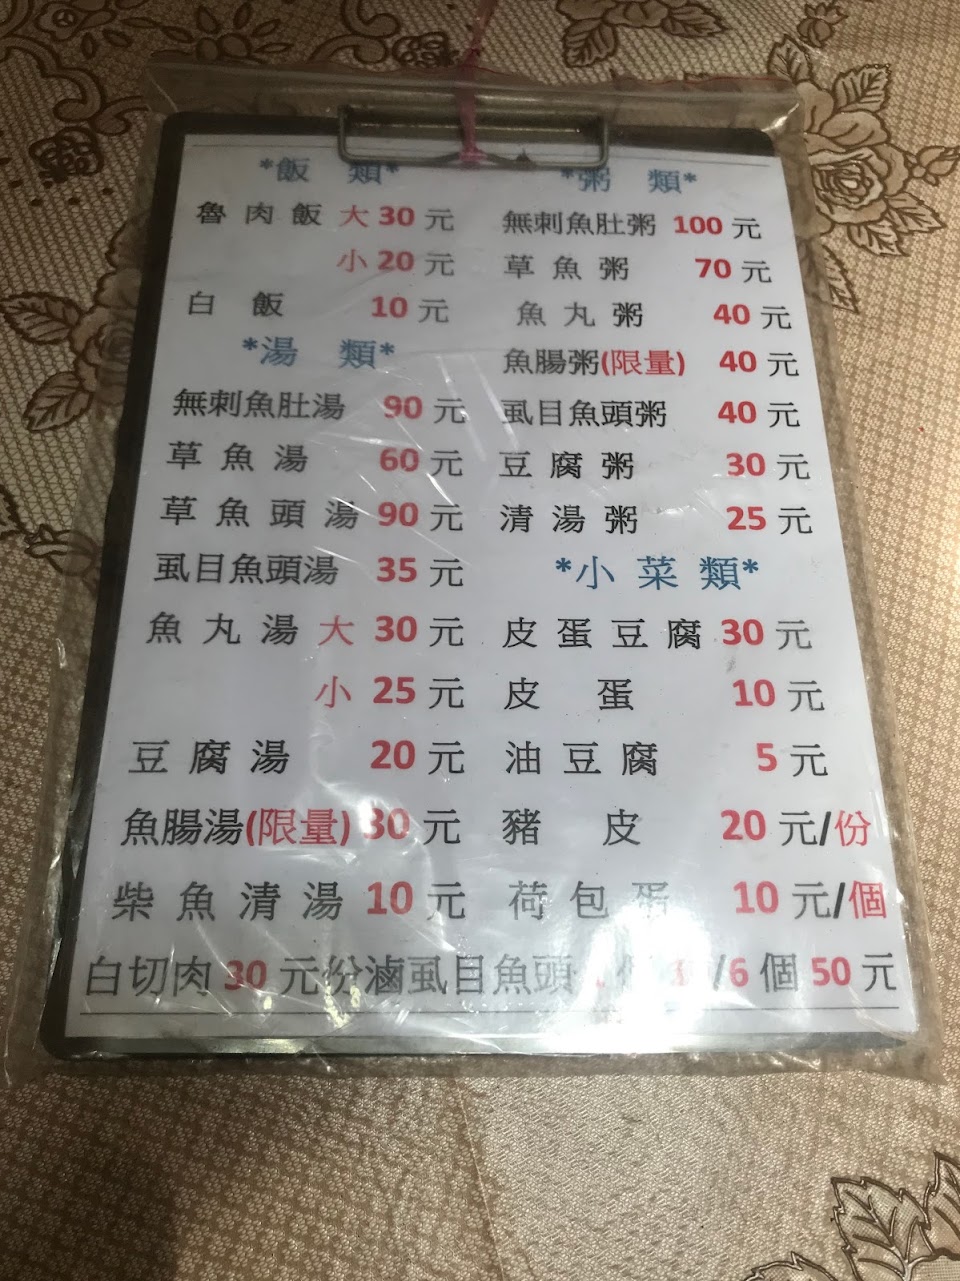 *飯 類*
魯肉飯 大 30 元
小 20 元
白 飯 10 元
*湯 類*
無刺魚肚湯 90 元
草魚湯 60 元
草魚頭湯 90 元
虱目魚頭湯 35 元
魚丸湯 大 30 元
小 25 元
豆腐湯 20 元
魚腸湯(限量) 30 元
柴魚清湯 10 元
*粥 類*
無刺魚肚粥 100 元
草魚粥 70 元
魚丸粥 40 元
魚腸粥(限量) 40 元
虱目魚頭粥 40 元
豆腐粥 30 元
清湯粥 25 元
*小菜類*
皮蛋豆腐 30 元
皮 蛋 10 元
油豆腐 5 元
豬 皮 20 元/份
荷包蛋 10 元/個
白切肉 30 元份滷虱目魚頭 個 /6 個 50 元